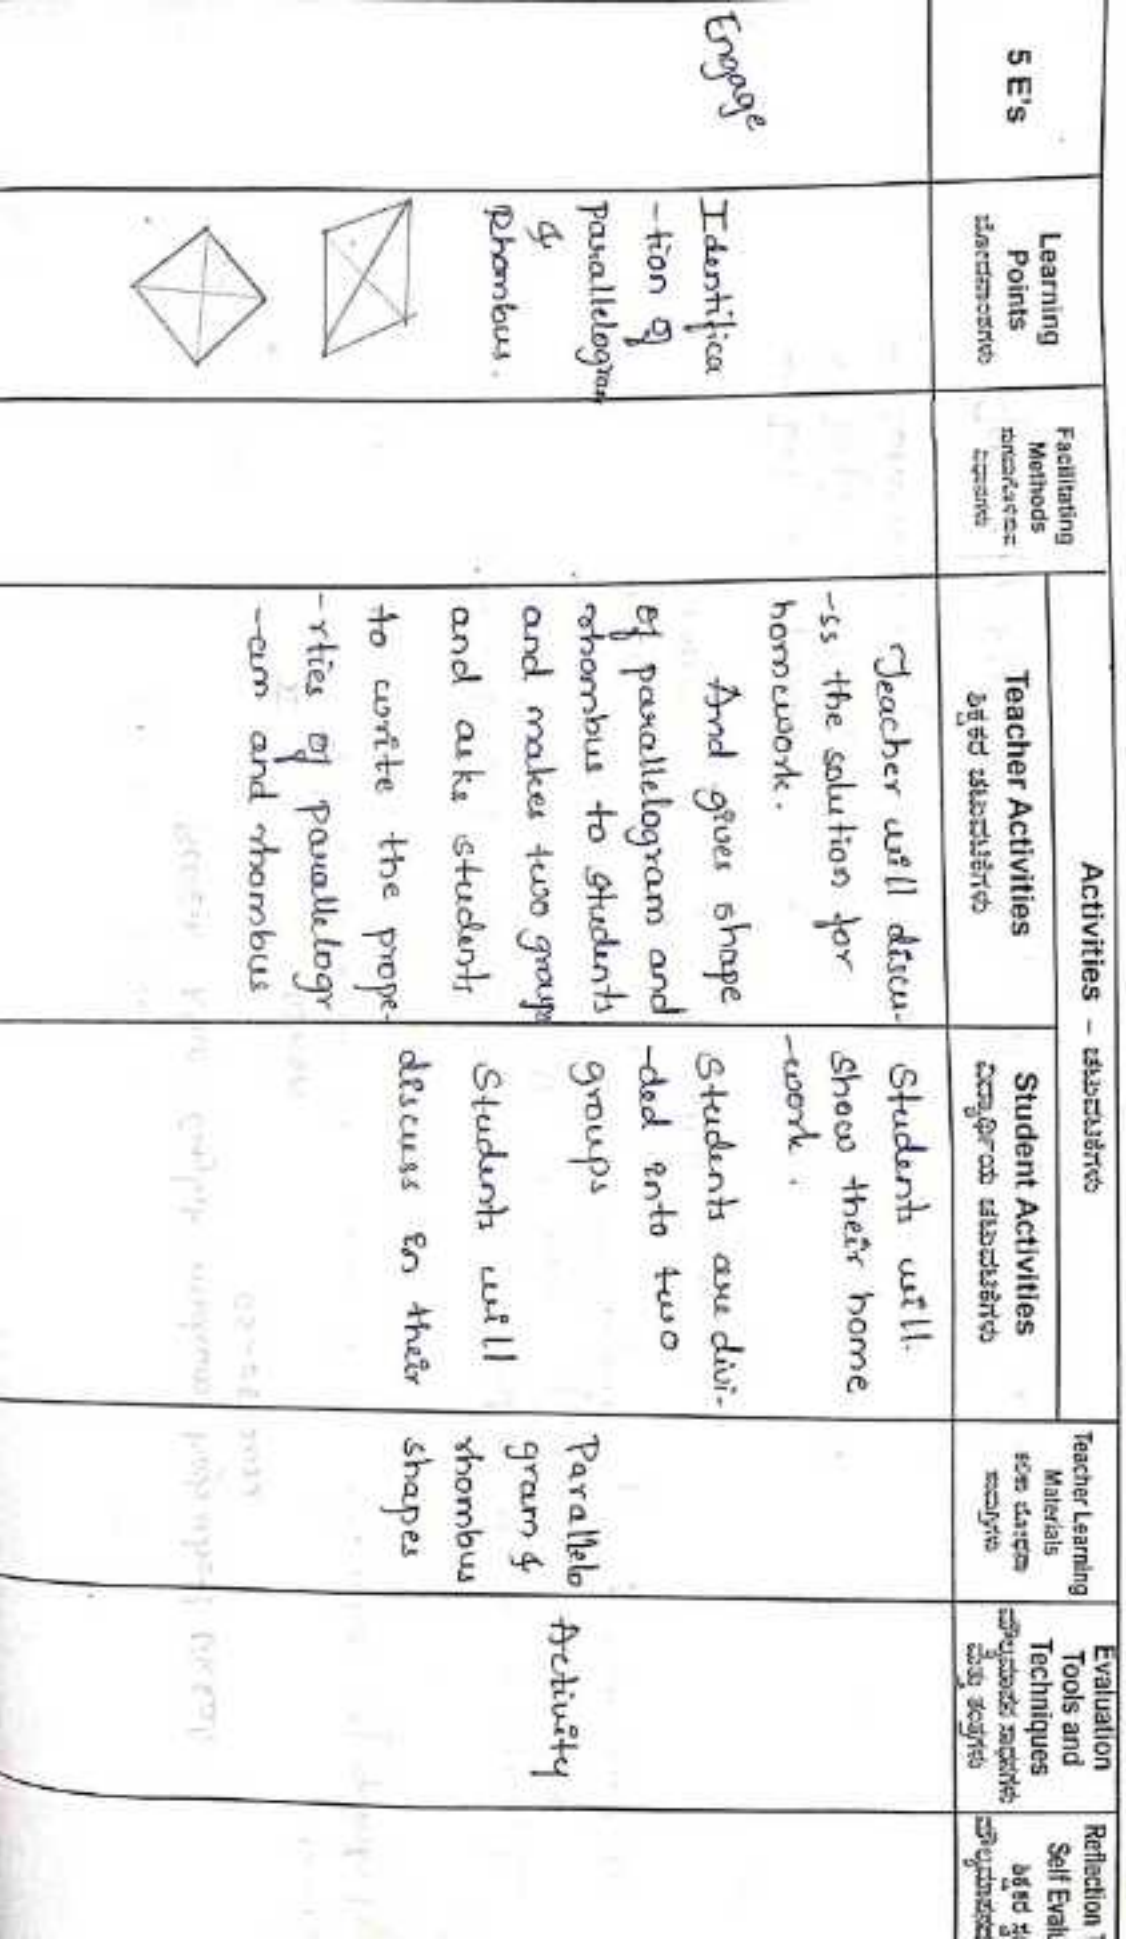 5 E's
Learning
Points
ಬೋಧನಾಂಶಗಳು
Facilitating
Methods
ಸುಗಮಗೊಳಿಸುವ
ವಿಧಾನಗಳು
Activities – ಚಟುವಟಿಕೆಗಳು
Teacher Activities
ಶಿಕ್ಷಕರ ಚಟುವಟಿಕೆಗಳು
Student Activities
ವಿದ್ಯಾರ್ಥಿಯ ಚಟುವಟಿಕೆಗಳು
Teacher Learning
Materials
ಕಲಿಕಾ ಬೋಧನಾ
ಸಾಮಗ್ರಿಗಳು
Evaluation
Tools and
Techniques
ಮೌಲ್ಯಮಾಪನ ಸಾಧನಗಳು
ಮತ್ತು ತಂತ್ರಗಳು
Reflection
Self
ಶಿಕ್ಷಕರ
Engage
Identifica
-tion of
Parallelogram
&
Rhombus.
Teacher will discu-
-ss the solution for
homework.
And gives shape
of parallelogram and
rhombus to students
and makes two groups
and asks students
to write the prope-
-rties of Parallelogr
-am and rhombus
Students will
show their home
-work.
Students are divi-
-ded into two
groups
Students will
discuss in their
Parallelo
gram &
rhombus
shapes
Activity